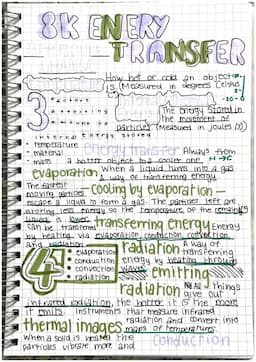 8K ENERY
TRANSFER
How hot or cold an object
is (Measured in degrees Celsius
3
The energy stored in
the movement of
particles (Measured in joules (J)
• temperature
• material
• mass
energy transfer Always from
a hotter object to a cooler one. H→C
evaporation When a liquid turns into a gas
A way of transferring energy
The fastest
moving particles cooling by evaporation —
escape a liquid to form a gas. The particles left are
storing less energy so the temperature of the
liquid is lower
transferring energy Energy
can be transferred
by heating via evaporation conduction convection
and radiation
4
evaporation
conduction
convection
radiation
radiation A way of
transferring energy by heating through
waves
emitting
radiation All things
give out
infrared radiation, the hotter it is the more
it emits. Instruments that measure infrared
radiation and convert into
thermal images maps of temperatures.
When a solid is heated the
particles vibrate more and
conduction